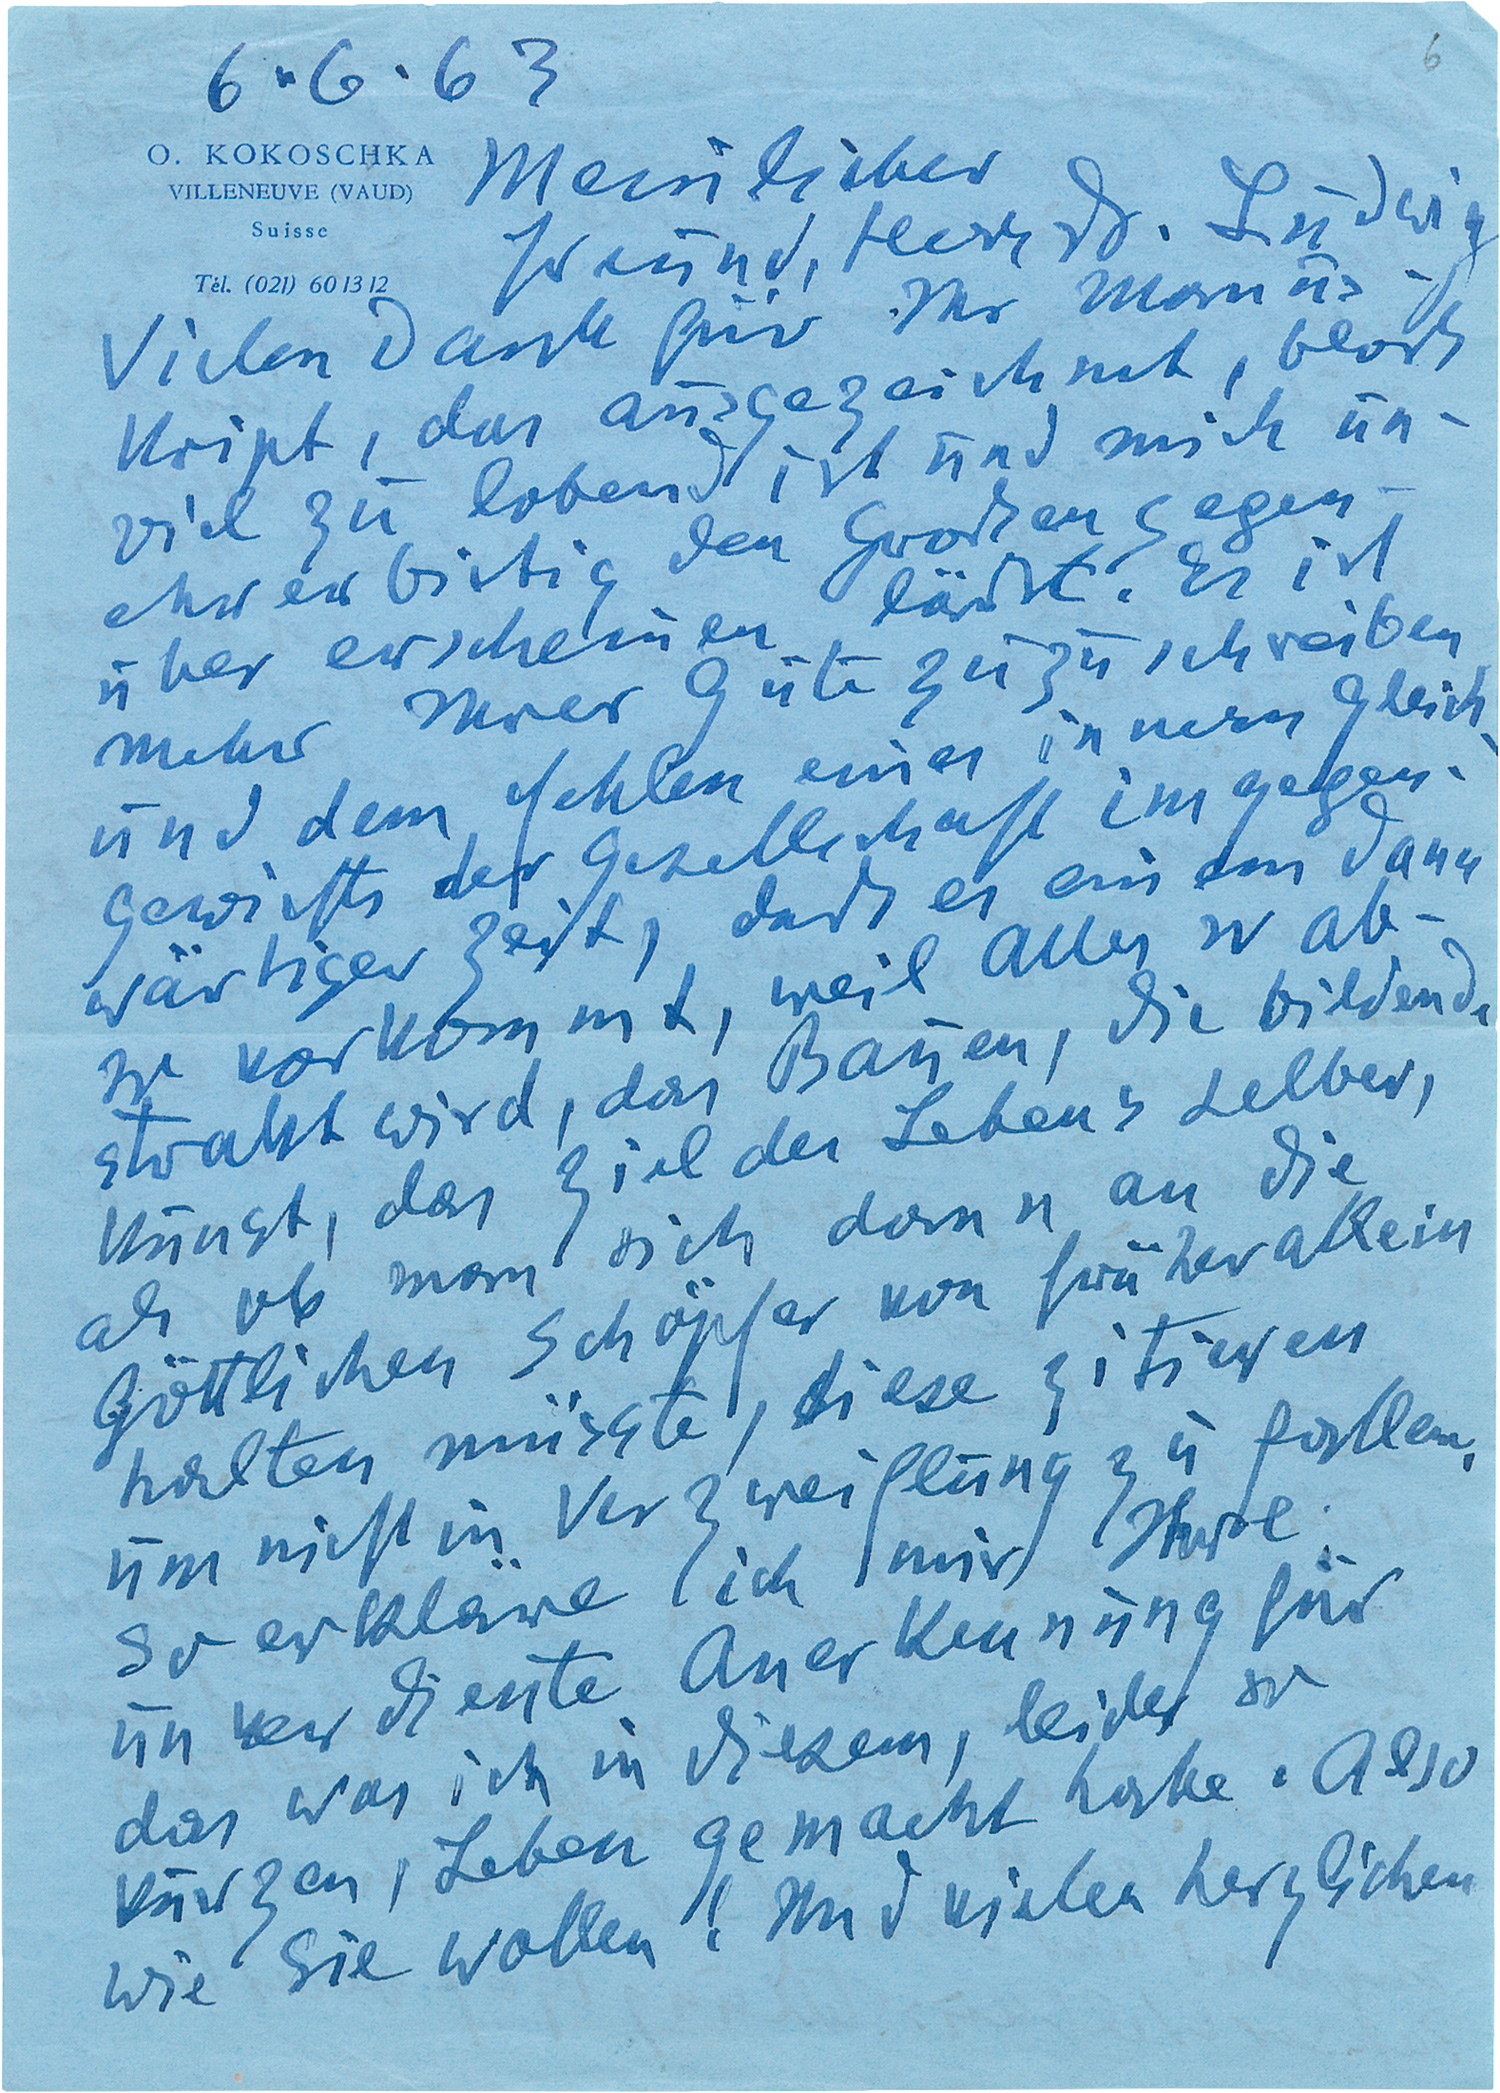 6
6.6.63
O. KOKOSCHKA
VILLENEUVE (VAUD)
Suisse
Tél. (021) 60 13 12
Mein lieber
Freund, Herr Dr. Ludwig
Vielen Dank für Ihr Manus-
kript, das ausgezeichnet, blosz
viel zu lobend ist und mich un-
ehrerbietig den Groszen gegen-
über erscheinen läszt. Es ist
mehr Ihrer Güte zuzuschreiben
und dem Fehlen eines innern Gleich-
gewichts der Gesellschaft in gegen-
wärtiger Zeit, dasz es einem dann
so vorkommt, weil Alles so ab-
strakt wird, das Bauen, die bildende
Kunst, das Ziel des Lebens selber,
als ob man sich dann an die
Göttlichen Schöpfer von früher allein
halten müsste, diese zitieren
um nicht in Verzweiflung zu fallen.
So erkläre ich mir Ihre
unverdiente Anerkennung für
das was ich in diesem, leider so
kurzen, Leben gemacht habe. Also
wie Sie wollen! Und vielen herzlichen